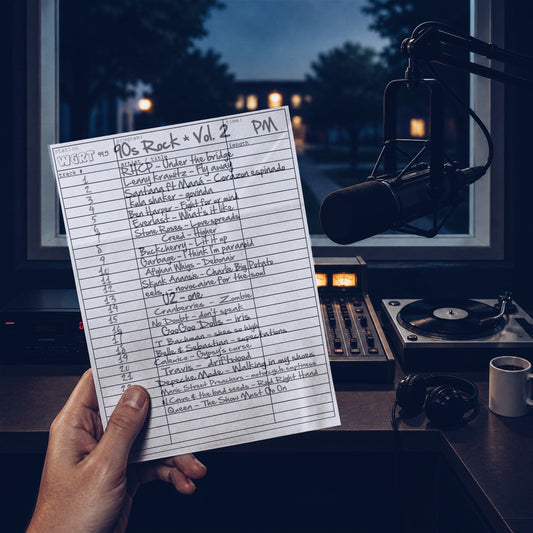 station program time
WGRT 91.5 90s Rock * Vol. 2 PM
track # artist / title length
1 RHCP - Under the bridge
2 Lenny Kravitz - Fly away
3 Santana ft Maná - Corazon espinado
4 Kula shaker - govinda
5 Ben Harper - Fight for ur mind
6 Everlast - What's it like
7 Stone Roses - Love spreads
8 Creed - Higher
9 Buckcherry - Lit it up
10 Garbage - I think I'm paranoid
11 Afghan Whigs - Debonair
12 Skunk Anansie - Charlie Big Potato
13 eels - novocaine for the soul
14 U2 - one
15 Cranberries - Zombie
16 No Doubt - Don't speak
17 Goo Goo Dolls - Iris
18 T. Bachman - shes so high
19 Belle & Sebastian - expectations
20 Calexico - Gypsy's curse
21 Travis - driftwood
22 Depeche Mode - Walking in my shoes
Manic Street Preachers -
N Cave & the bad seeds - Red Right Hand
Queen - The Show Must Go On